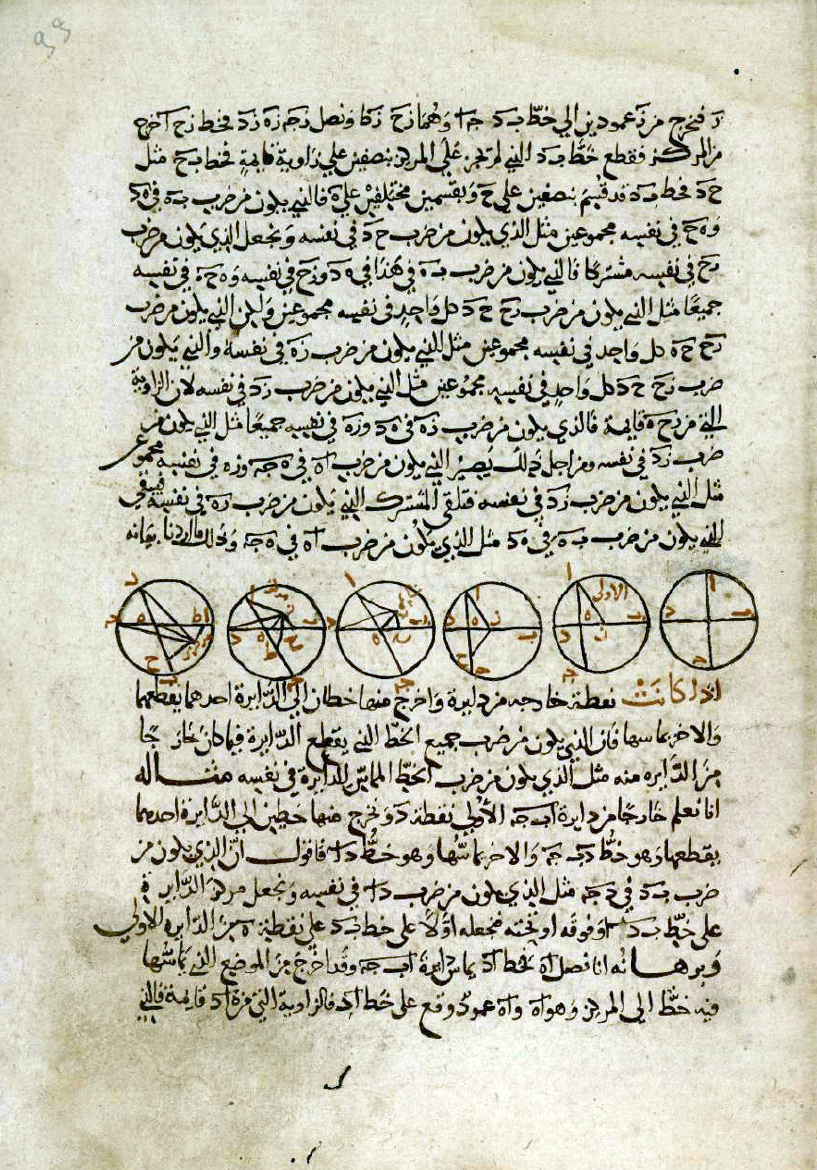 ز فنخرج من ز عمودين الي خطّ ب د جا وهما زح زكا ونصل زجه زه زد فخط زح اخرج
من المركز فقطع خطّ ب د الذي لم يجز علي المركز بنصفين علي زاوية قايمة فخط ب ح مثل
ح د فخط ب د قد قسم بنصفين علي ح وبقسمين مختلفين علي ه فالذي يكون من ضرب ب ه في ه د
وه ح في نفسه مجموعين مثل الذي يكون من ضرب ح د في نفسه ونجعل الذي يكون من ضرب
زح في نفسه مشتركا فالذي يكون من ضرب ب ه في ه د وزح في نفسه وه ح في نفسه
جميعا مثل الذي يكون من ضرب زح ح د كل واحد في نفسه مجموعين ولكن الذي يكون من ضرب
زح ح ه كل واحد في نفسه مجموعين مثل الذي يكون من ضرب زه في نفسه والذي يكون من
ضرب زح ح د كل واحد في نفسه مجموعين مثل الذي يكون من ضرب زد في نفسه لان الزاوية
التي من زح ه قايمة فالذي يكون من ضرب ب ه في ه د وزه في نفسه جميعا مثل الذي يكون من
ضرب زد في نفسه ومن اجل ذلك يصير الذي يكون من ضرب اه في ه جه وزه في نفسه مجموعين
مثل الذي يكون من ضرب زد في نفسه فنلقي المشترك الذي يكون من ضرب زه في نفسه فيبقي
الذي يكون من ضرب ب ه في ه د مثل الذي يكون من ضرب اه في ه جه وذلك ما اردنا بيانه
الاولي
اذا كانت نقطة خارجه من دايرة واخرج منها خطان الي الدّايرة احدهما يقطعهما
والاخر يماسها فان الذي يكون من ضرب جميع الخطّ الذي يقطع الدّايرة فيما كان خارجًا
من الدّايره منه مثل الذي يكون من ضرب الخطّ المماسّ للدايرة في نفسه مثاله
انا نعلم خارجًا من دايرة اب جه الأولي نقطة د ونخرج منها خطين الي الدّايرة احدهما
يقطعها وهو خطّ د ب جه والاخر يماسّها وهو خطّ دا فاقول انّ الذي يكون من
ضرب ب د في د جه مثل الذي يكون من ضرب دا في نفسه ونجعل مركز الدّايرة
علي خطّ ب د او فوقه او تحته فنجعله اوّلا علي خط ب د علي نقطة ه من الدّايرة الاولي
وبرهانه انا نصل اه فخط اد يماس دايرة اب جه وقد اخرج من الموضع الذي يماسّها
فيه خطّا الي المركز وهو اه واه عمود وقع علي خط اد فالزاوية التي من ه اد قايمة فالذي